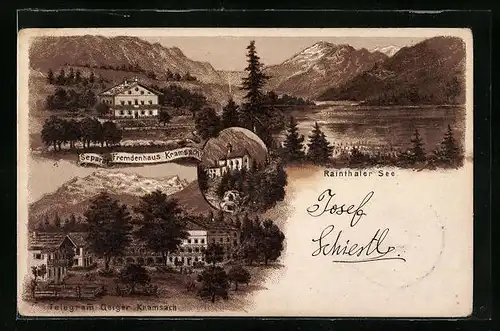 Separ. Fremdenhaus Kramsach
Rainthaler See
Josef
Schiestl
Telegram: Geiger, Kramsach